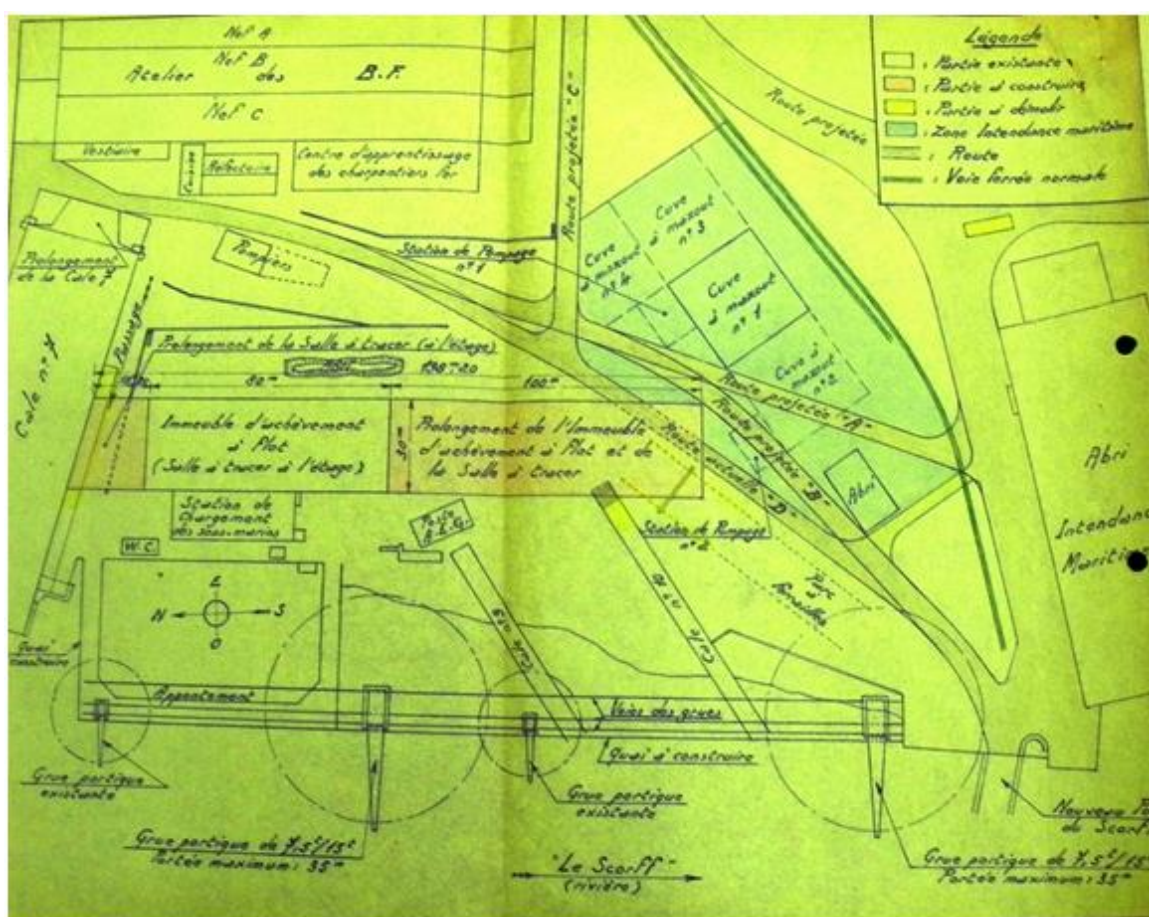 Nef A
Nef B
Atelier des B.F.
Nef C
Vestiaire
Cuisine
Réfectoire
Centre d'apprentissage
des charpentiers fer
Légende
: Partie existante
: Partie à construire
: Partie à démolir
: Zone Intendance maritime
: Route
: Voie ferrée normale
Route projetée
Route projetée "C"
Prolongement
de la Cale 7
Pompiers
Station de Pompage
n°1
Cuve
à mazout
n°3
Cuve
à mazout
n°4
Cuve
à mazout
n°1
Cuve à
mazout
n°2
Cale n°7
Passage
Prolongement de la Salle à tracer (à l'étage)
80m
138m20
100m
30m
Immeuble d'achèvement
à Plot
(Salle à tracer à l'étage)
Prolongement de l'Immeuble
d'achèvement à Plot et de
la Salle à tracer
Route projetée "A"
Route projetée "B"
Route actuelle "D"
Abri
Abri
Intendance
Maritime
Station de
Chargement
des sous-marins
W.C.
Poste
Station de Pompage
n°2
Parc
à
ferrailles
E
N
S
O
Quai
construire
Appontement
Voies des grues
Quai à construire
Grue portique
existante
Grue portique
existante
Grue portique de 7,5t/15t
Portée maximum: 35m
"Le Scorff"
(rivière)
Nouveau Po
du Scorf
Grue portique de 7,5t/15
Portée maximum: 35m